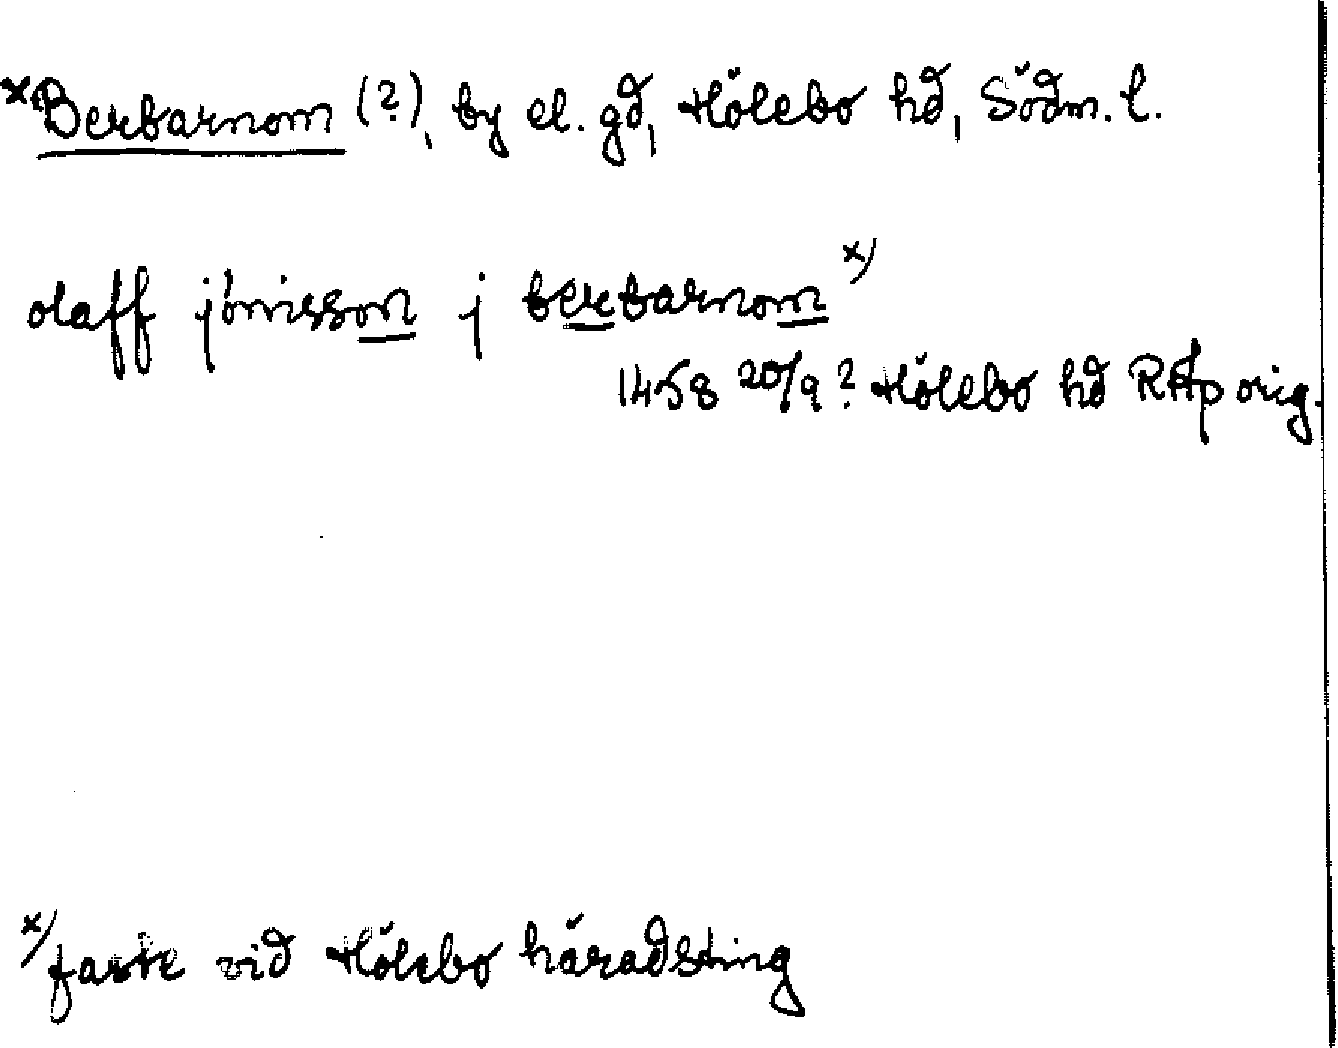 *Berbarnom (?), by el. gd, Hölebo hd, Södm. l.
olaff jönisson j berbarnom x)
1458 20/9? Hölebo hd RAp orig.
x) faste vid Hölebo häradsting